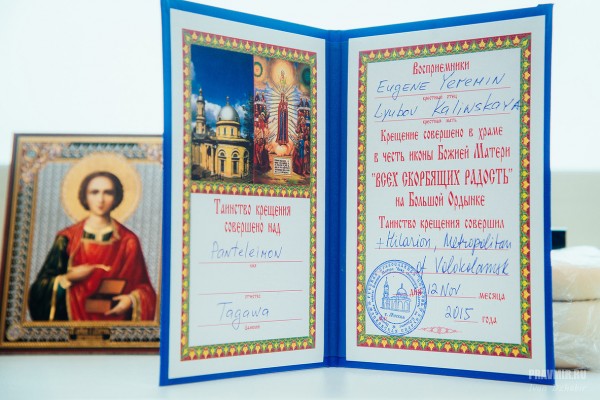 Таинство крещения
совершено над
Panteleimon
имя
отчество
Tagawa
фамилия
Восприемники
Eugene Yeremin
крестный отец
Lyubov Kalinskaya
крестная мать
Крещение совершено в храме
в честь иконы Божией Матери
"ВСЕХ СКОРБЯЩИХ РАДОСТЬ"
на Большой Ордынке
Таинство крещения совершил
+Hilarion, Metropolitan
of Volokolamsk
дня 12 Nov месяца
2015 года
г. Москва
PRAVMIR.RU